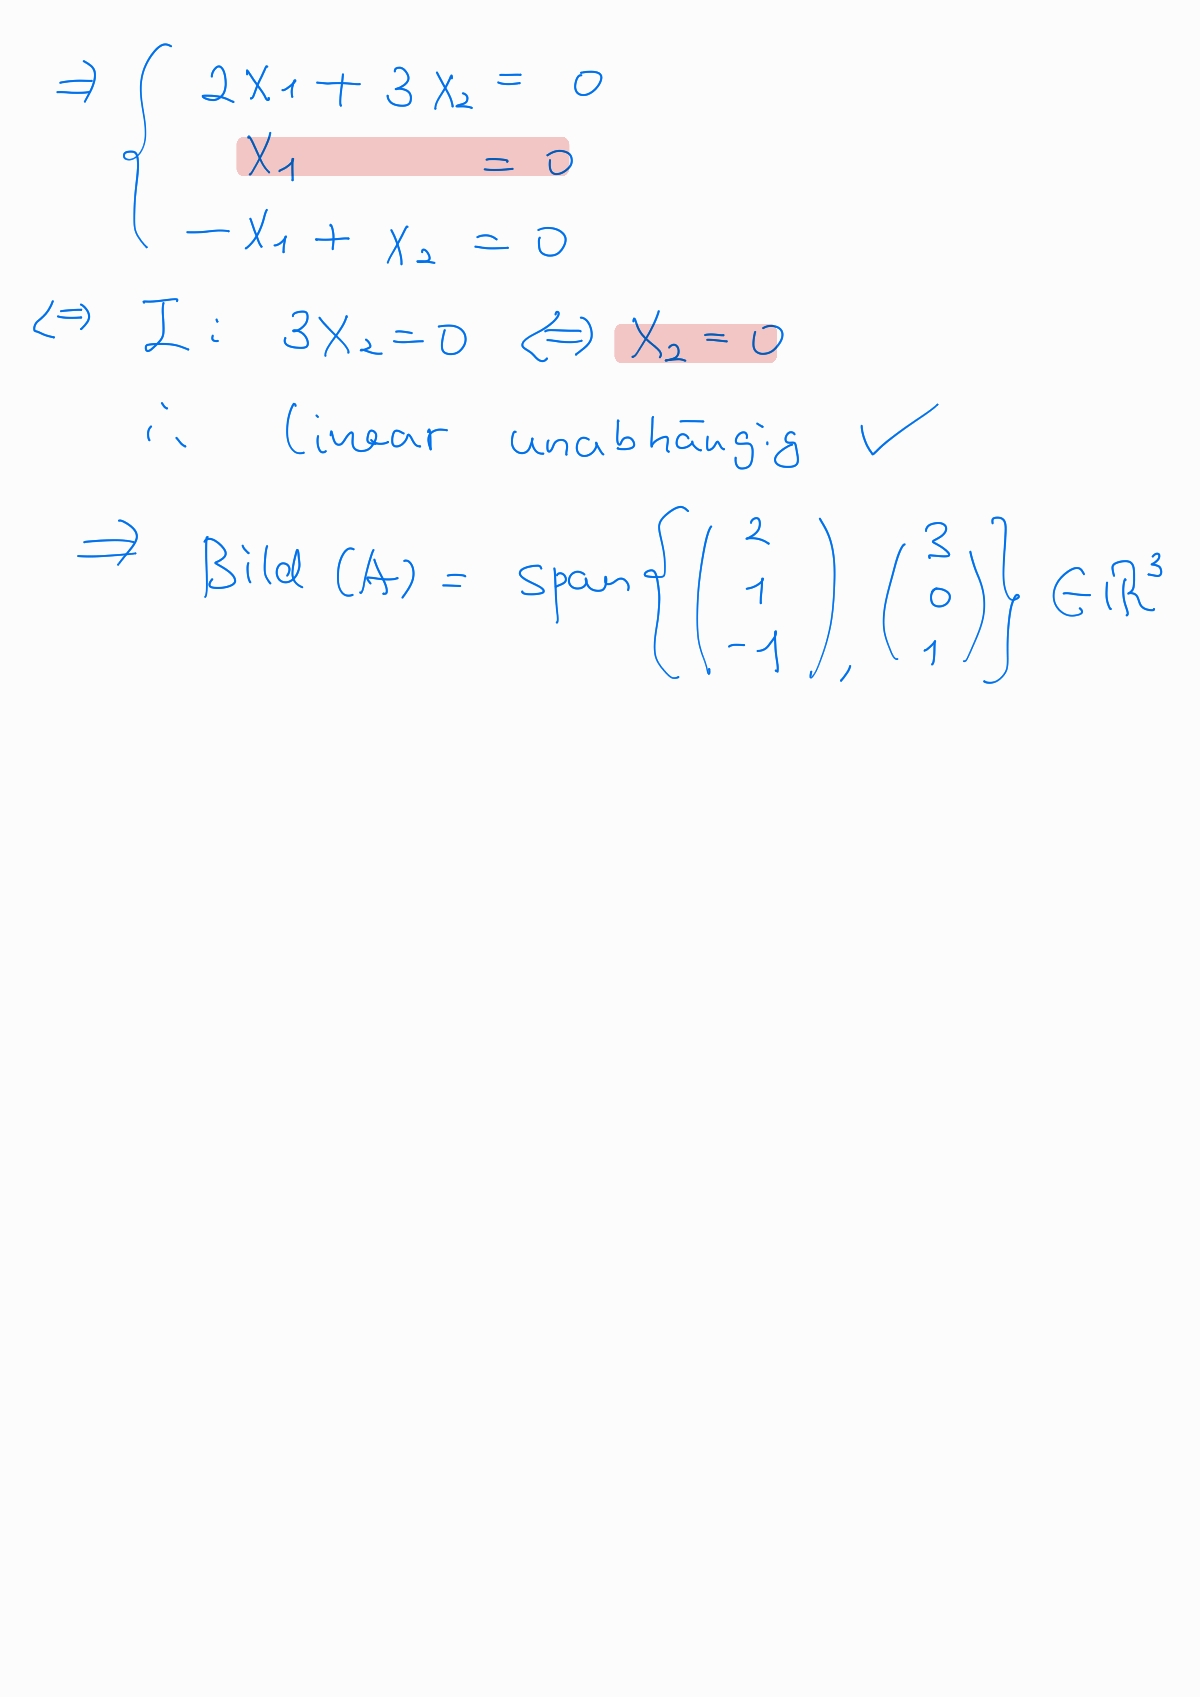 ⇒ { 2x₁ + 3x₂ = 0
x₁ = 0
−x₁ + x₂ = 0
⇔ I: 3x₂ = 0 ⇔ x₂ = 0
∴ linear unabhängig ✓
⇒ Bild (A) = span { (2 1 −1), (3 0 1) } ∈ ℝ³